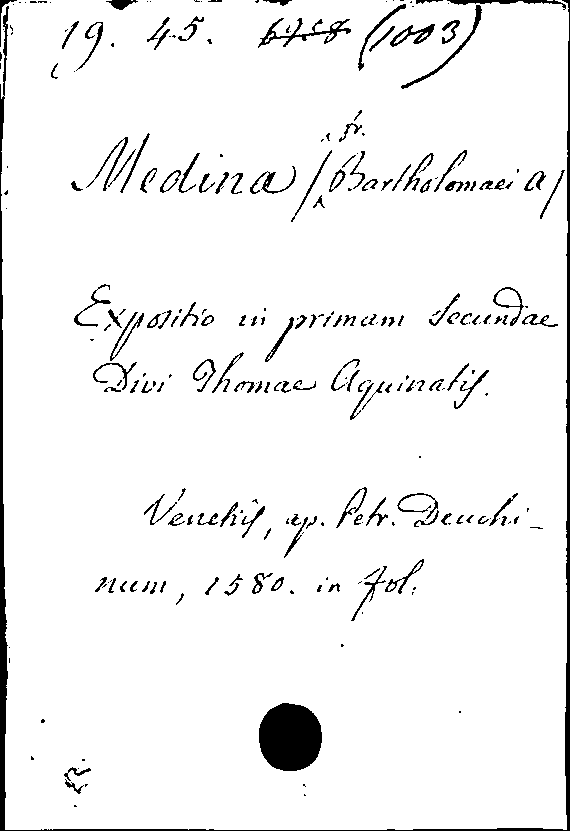 19. 45. 6758 (1003)
Medina / fr. Bartholomaei a /
Expositio in primam secundae
Divi Thomae Aquinatis.
Venetiis, ap. Petr. Deuchi-
num, 1580. in fol.